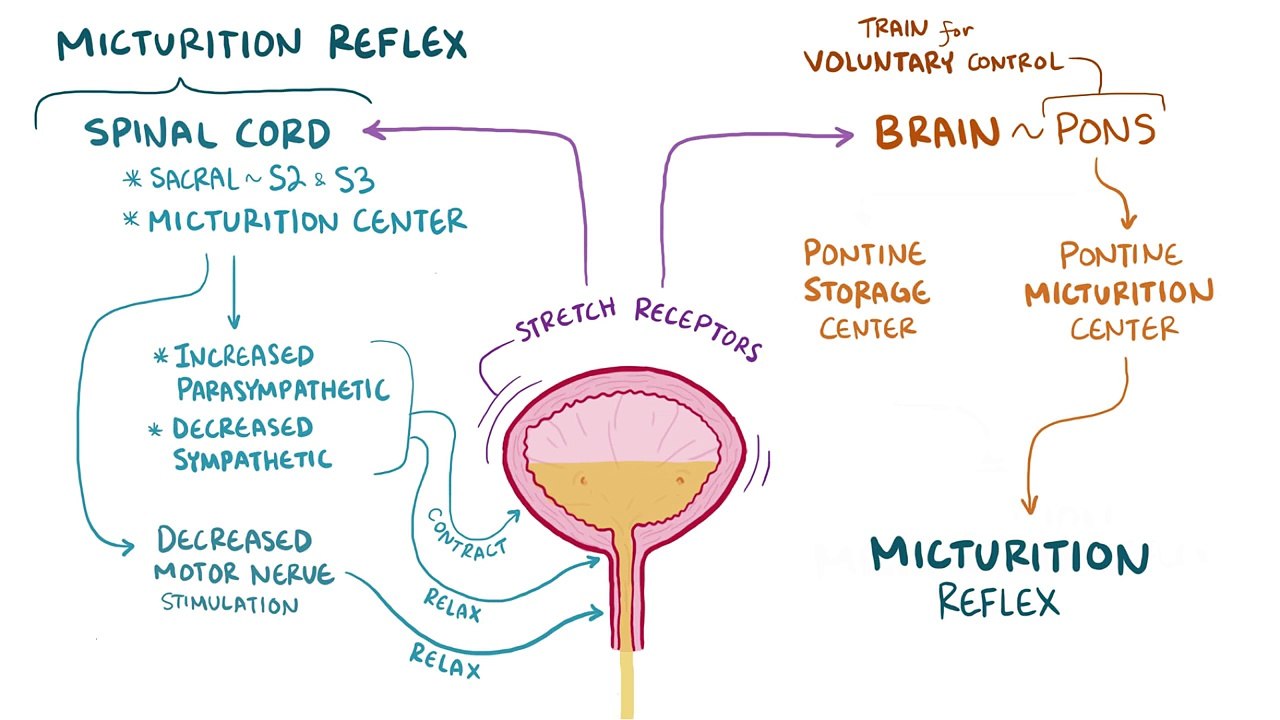 MICTURITION REFLEX
SPINAL CORD
* SACRAL ~ S2 & S3
* MICTURITION CENTER
* INCREASED
PARASYMPATHETIC
* DECREASED
SYMPATHETIC
DECREASED
MOTOR NERVE
STIMULATION
CONTRACT
RELAX
RELAX
STRETCH RECEPTORS
TRAIN for
VOLUNTARY CONTROL
BRAIN ~ PONS
PONTINE
STORAGE
CENTER
PONTINE
MICTURITION
CENTER
MICTURITION
REFLEX